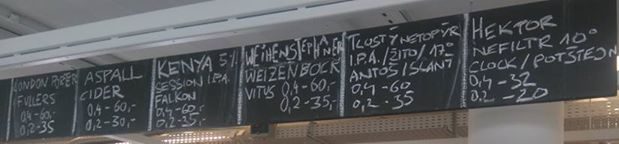 LONDON PORTER
FULLERS
0,4-60,-
0,2-35
ASPALL
CIDER
0,4-60,-
0,2-30,-
KENYA 5%
SESSION I.P.A.
FALKON
0,4-60,-
0,2-35,-
WEIHENSTEPHANER
WEIZENBOCK
VITUS 0,4-60,-
0,2-35,-
TLUSTÝ NETOPÝR
I.P.A./ŽITO/17°
ANTOŠ/SLANÝ
0,4-60
0,2-35
HEKTOR
NEFILTR 10°
CLOCK/POTŠTEJN
0,4-32
0,2-20